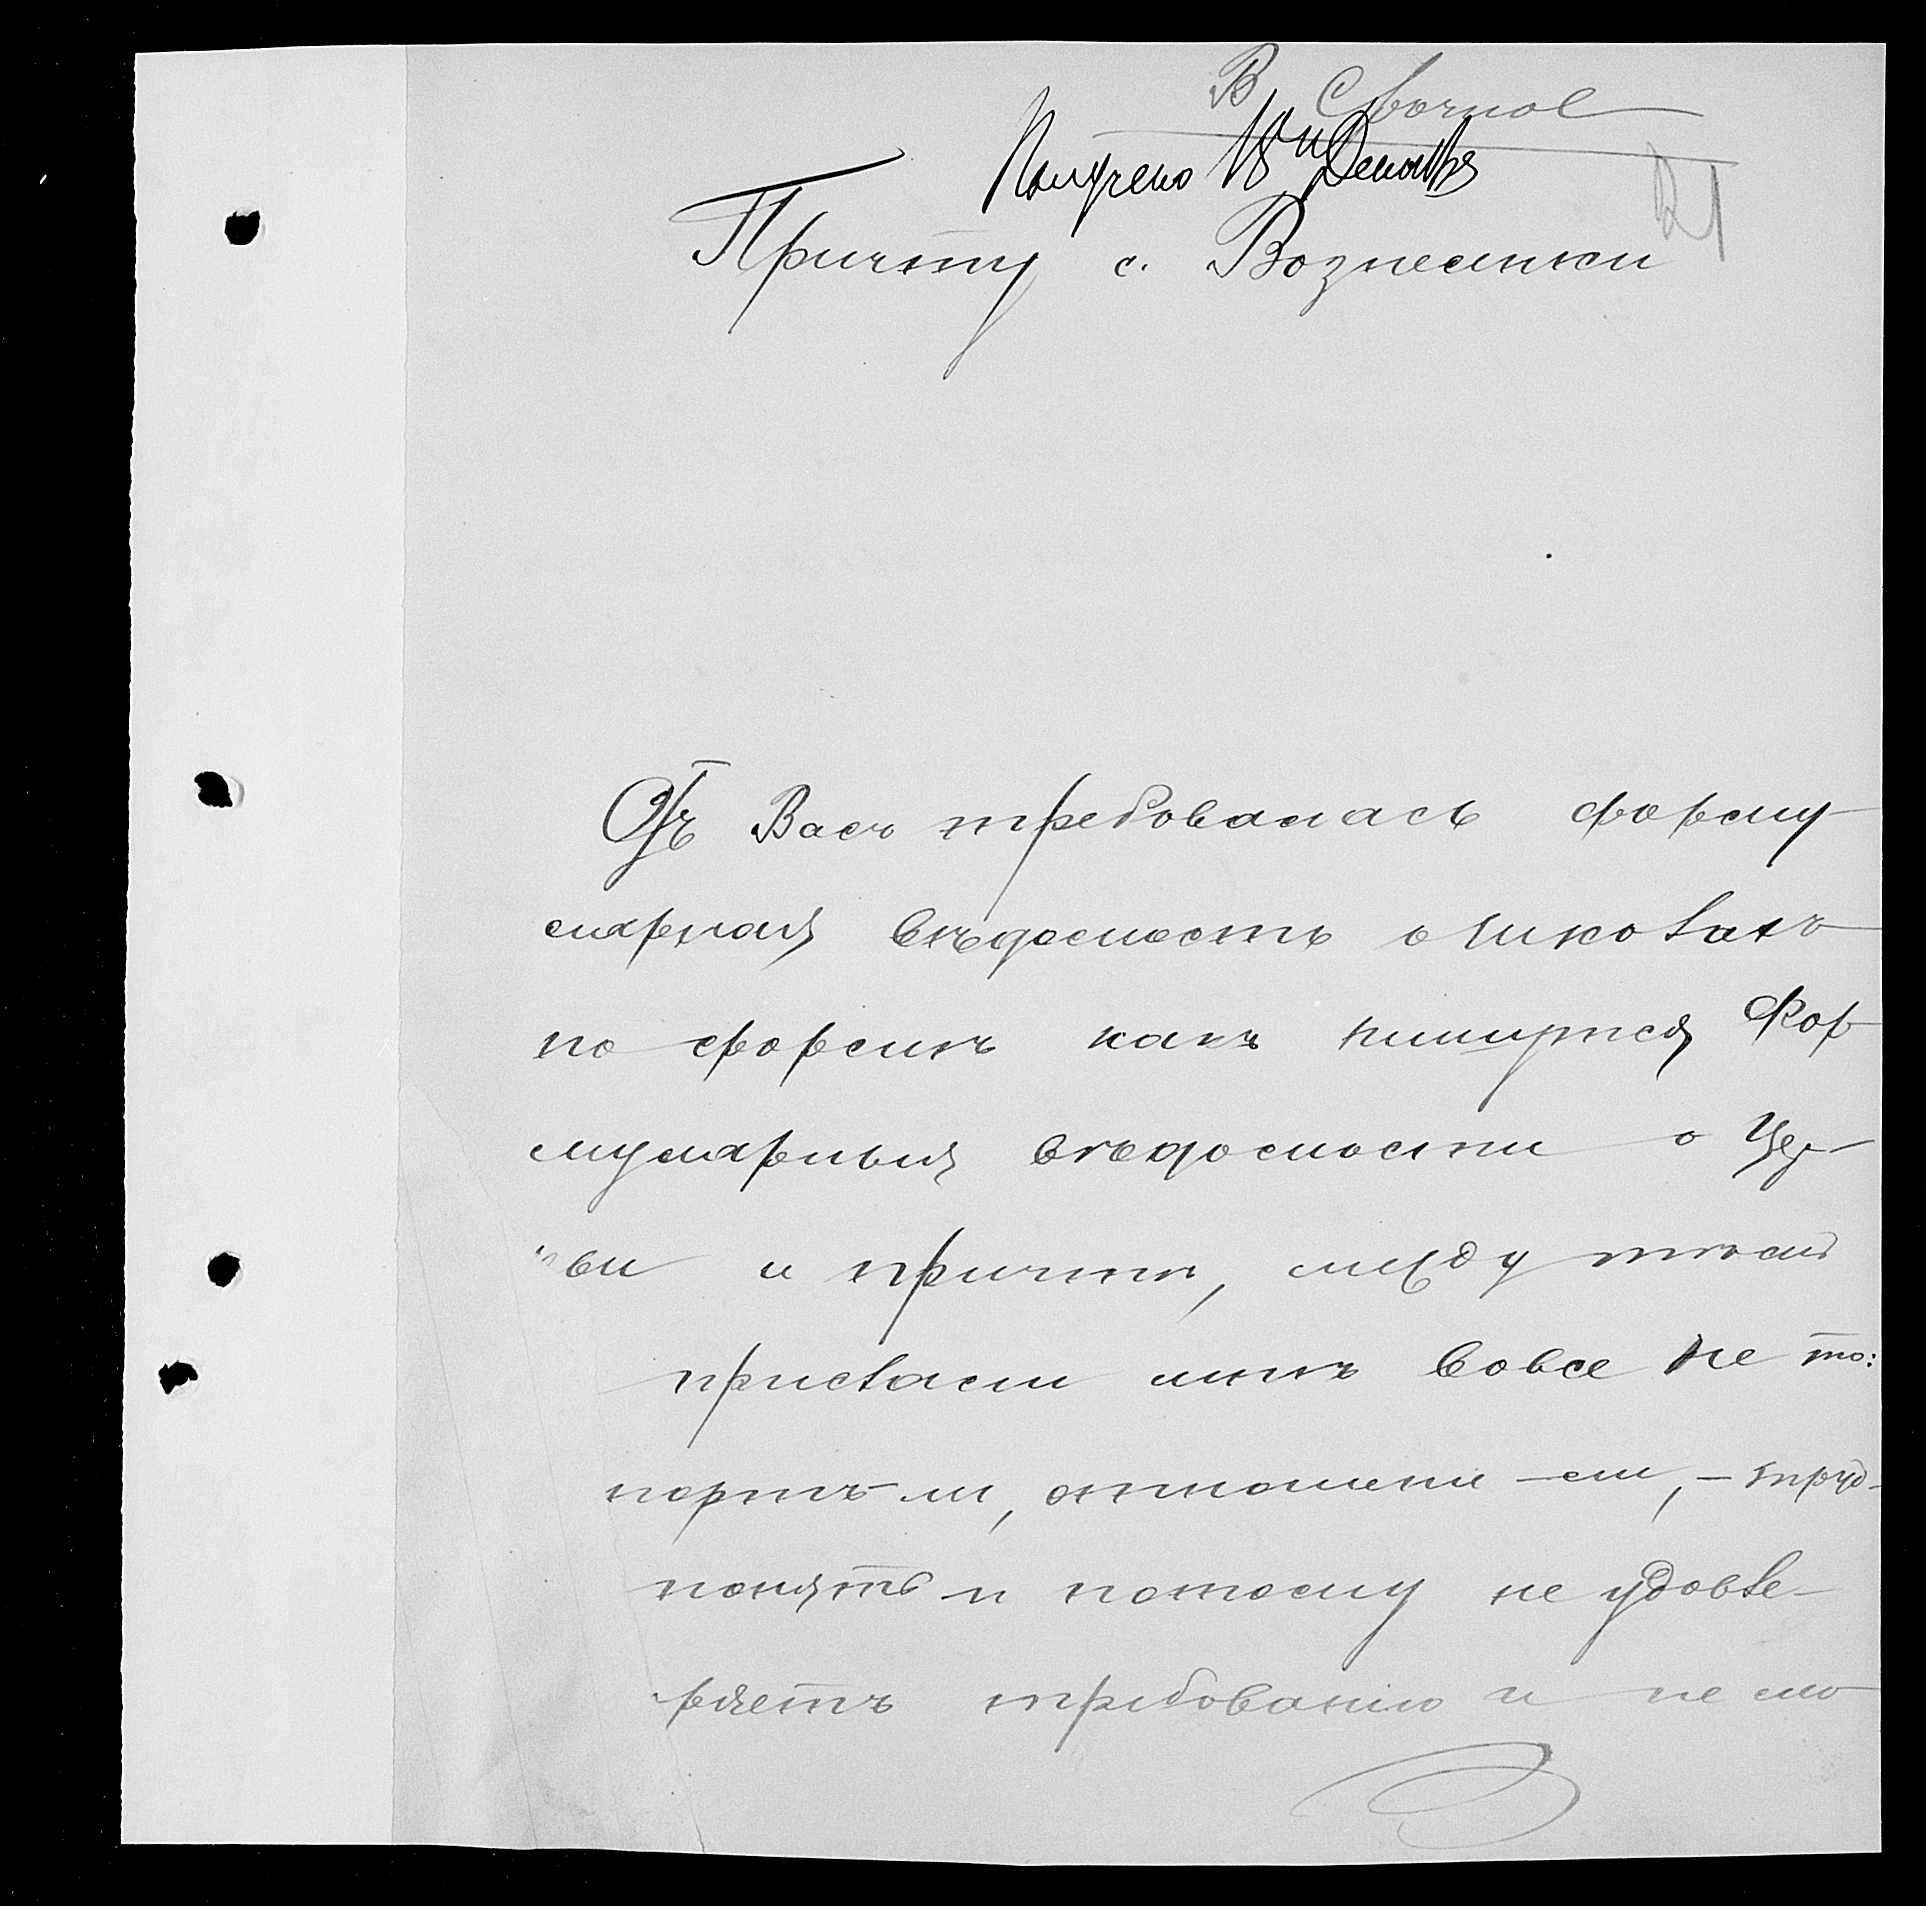 В Срочное
Получено 18го Декабря
21
Причту с. Вознесенки
Отъ Васъ требовалась форму-
лярная вѣдомость о школахъ
по формѣ какъ пишутся Фор-
мулярныя вѣдомости о Цер-
кви и причтѣ, между тѣмъ
прислали мнѣ вовсе не то:
рапортъ-ли, отношеніе-ли, - труд-
понять и потому не удовле-
ряетъ требованію и не мо